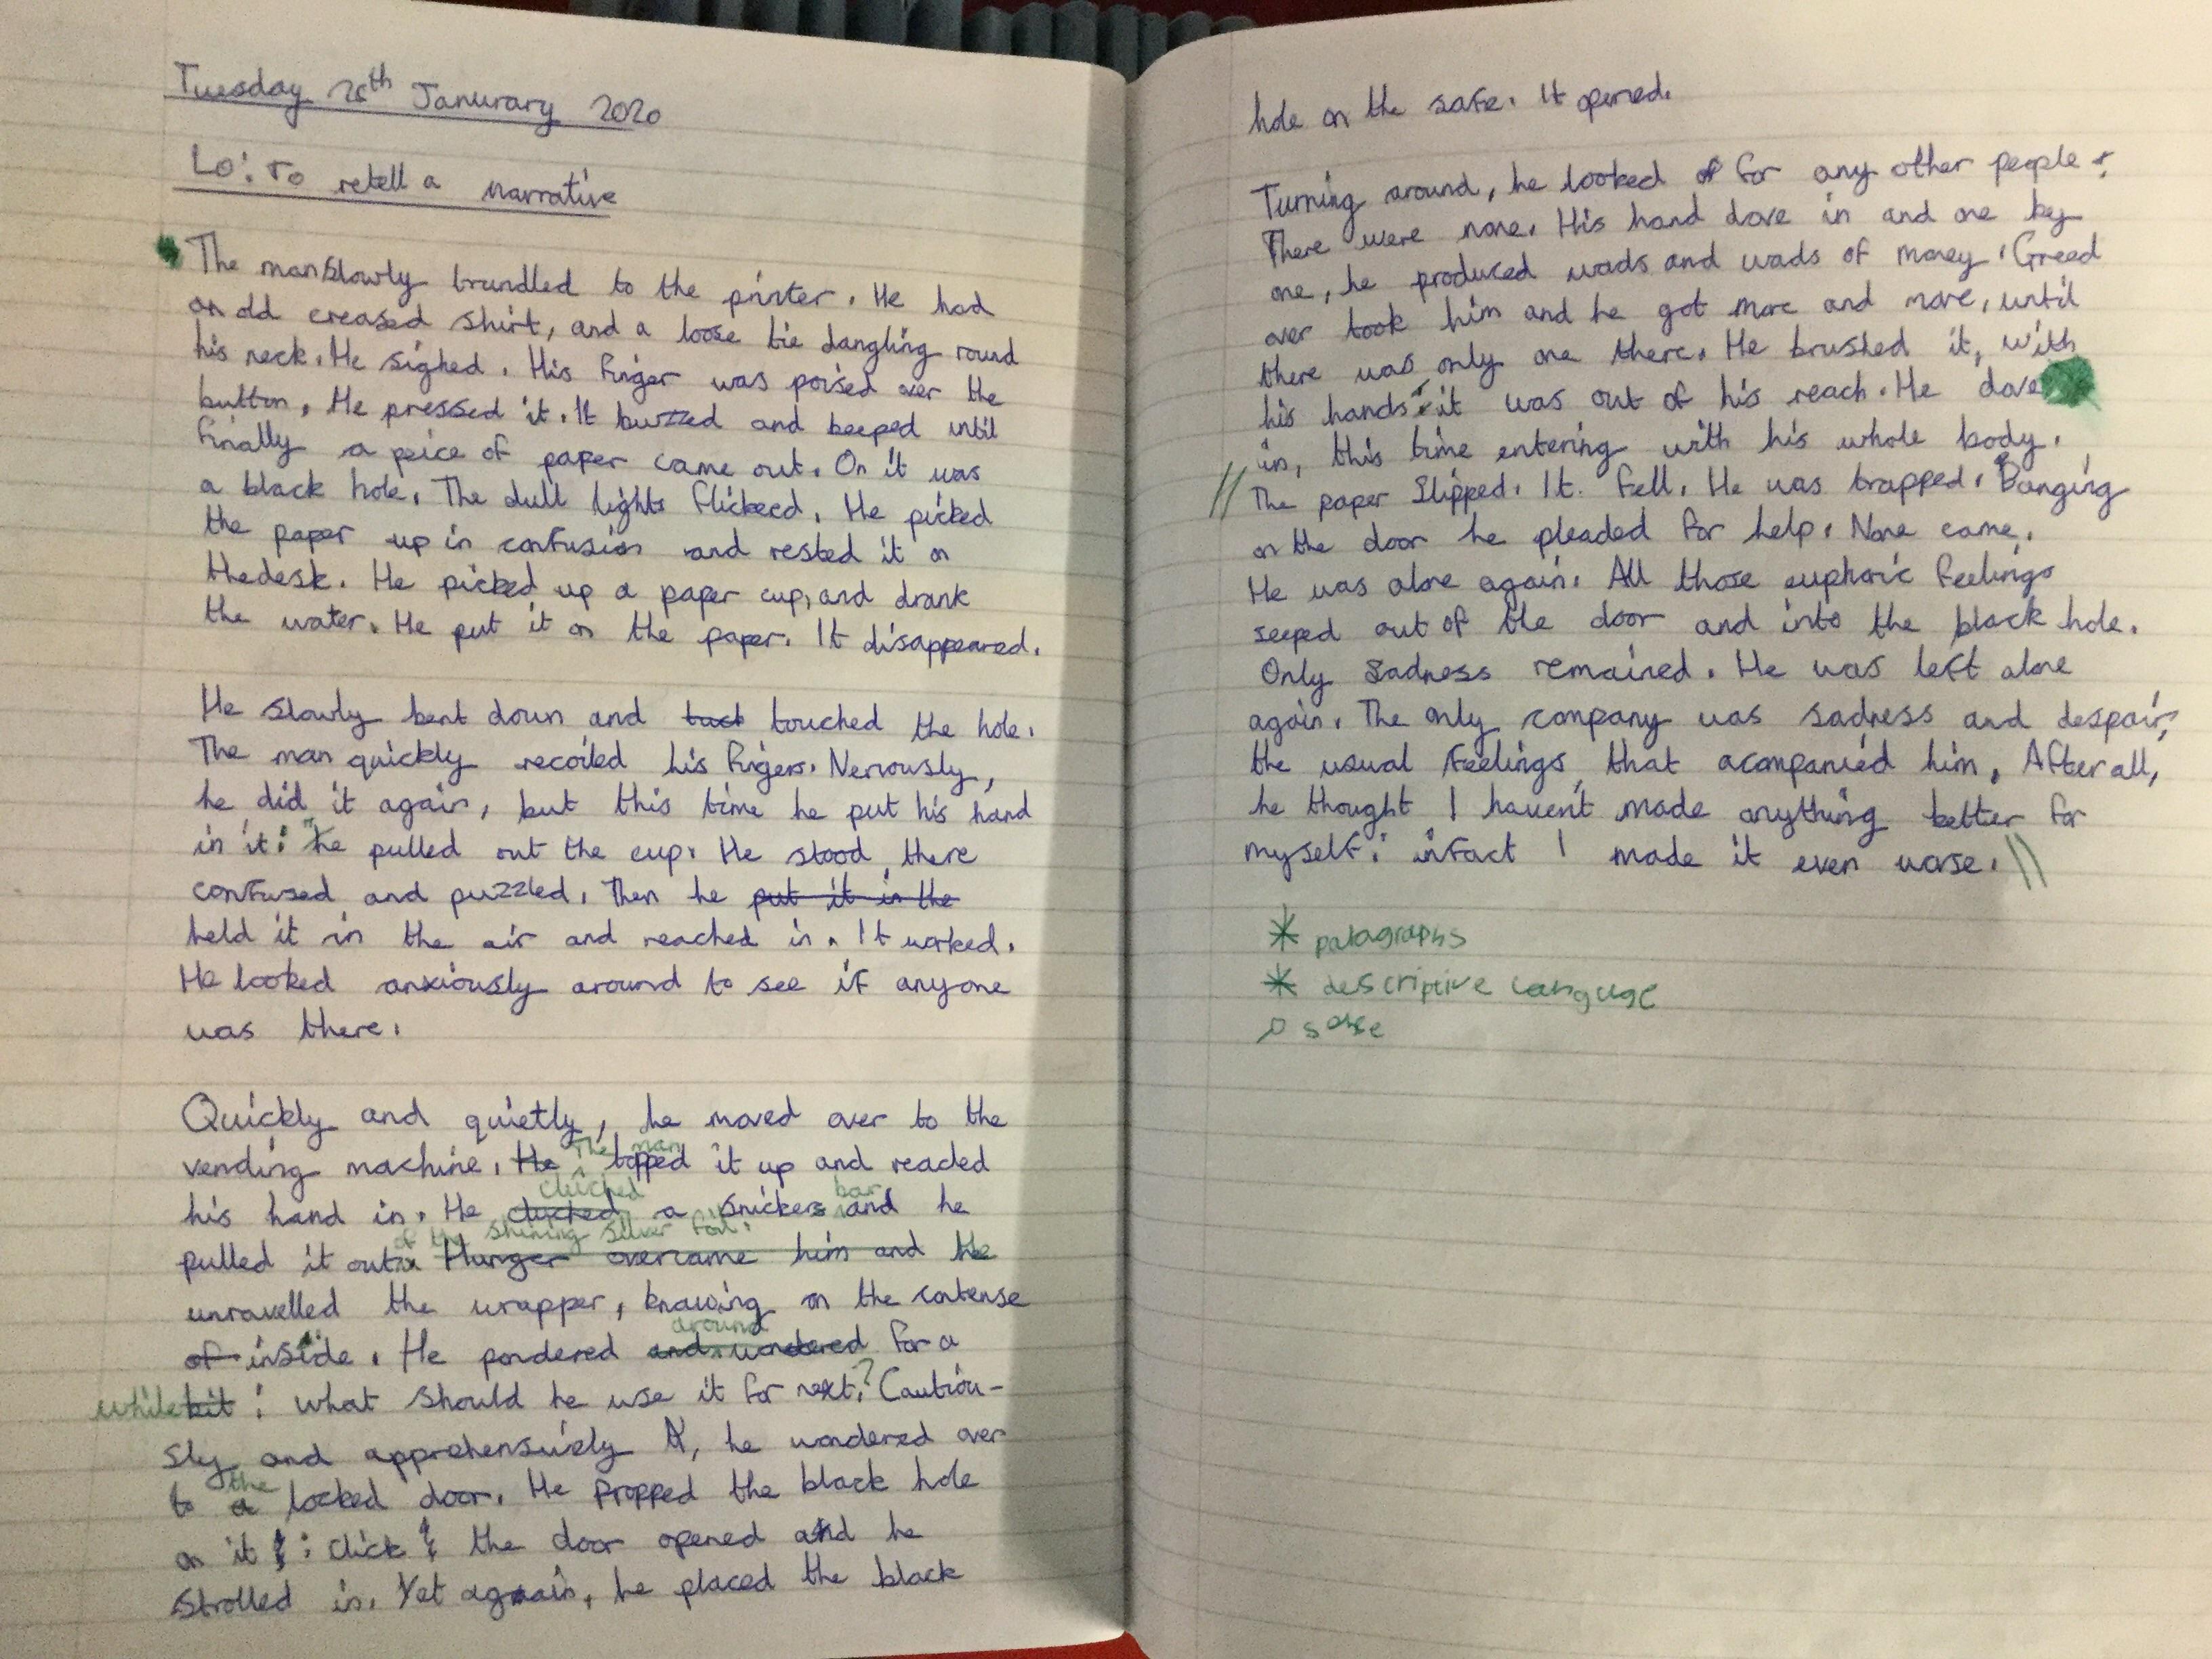 Tuesday 28th Janurary 2020
Lo: To retell a narrative
The man slowly trundled to the printer. He had
an old creased shirt, and a loose tie dangling round
his neck. He sighed. His finger was poised over the
button. He pressed it. It buzzed and beeped until
finally a peice of paper came out. On it was
a black hole. The dull lights flickeed. He picked
the paper up in confusion and rested it on
the desk. He picked up a paper cup, and drank
the water. He put it on the paper. It disappeared.
He slowly bent down and touched the hole.
The man quickly recoiled his fingers. Nervously,
he did it again, but this time he put his hand
in it: he pulled out the cup. He stood there
confused and puzzled. Then he put it in the
held it in the air and reached in. It worked.
He looked anxiously around to see if anyone
was there.
Quickly and quietly, he moved over to the
The man
vending machine. He topped it up and reached
clutched bar
his hand in. He clutched a snickers and he
of the shining silver foil.
pulled it out Hunger overcame him and He
unravelled the wrapper, knawing on the contense
around
of inside. He pondered and wondered for a
while bit: what should he use it for next? Cautiou-
sly and apprehensuively, he wandered over
the
to a locked door. He propped the black hole
on it: Click the door opened and he
strolled in. Yet again, he placed the black
hole on the safe. It opened.
Turning around, he looked for any other people:
There were none. His hand dove in and one by
one, he produced wads and wads of money. Greed
over took him and he got more and more, until
there was only one there. He brushed it, with
his hands: it was out of his reach. He dove
in, this time entering with his whole body.
// The paper Slipped. It fell. He was trapped. Banging
on the door he pleaded for help. None came.
He was alone again. All those euphoric feelings
seeped out of the door and into the black hole.
Only sadness remained. He was left alone
again. The only company was sadness and despair,
the usual feelings that acompanied him. After all,
he thought I haven't made anything better for
myself: infact I made it even worse. //
* paragraphs
* descriptive language